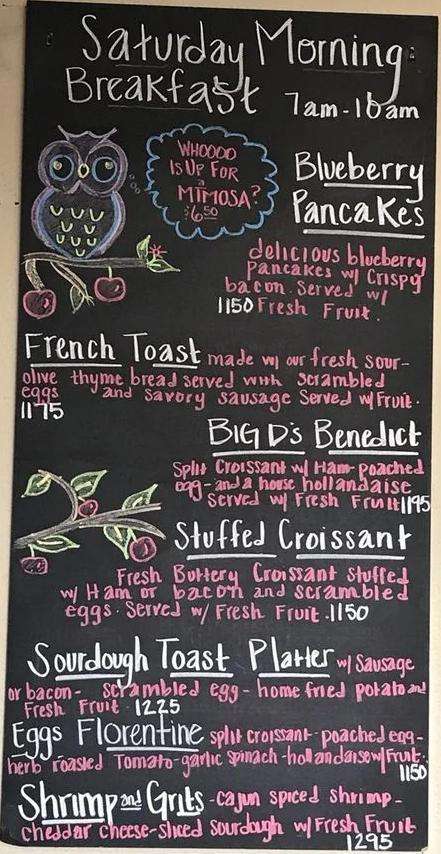 Saturday Morning
Breakfast 7am-10am
WHOOOO
IS UP FOR
a
MIMOSA?
$6.50
Blueberry
Pancakes
delicious blueberry
pancakes w/ Crispy
bacon. Served w/
1150 Fresh Fruit.
French Toast made w/ our fresh sour-
olive thyme bread served with scrambled
eggs and savory sausage Served w/ Fruit.
1175
BIG D's Benedict
Split Croissant w/ Ham-poached
egg-and a house hollandaise
Served w/ Fresh Fruit 1195
Stuffed Croissant
Fresh Buttery Croissant stuffed
w/ Ham or bacon and scrambled
eggs. Served w/ Fresh Fruit. 1150
Sourdough Toast Platter w/ Sausage
or bacon- scrambled egg- home fried potato and
Fresh Fruit. 1225
Eggs Florentine split croissant-poached egg-
herb roasted Tomato-garlic spinach-hollandaise w/ Fruit.
1150
Shrimp and Grits -cajun spiced shrimp-
cheddar cheese-sliced Sourdough w/ Fresh Fruit
1295